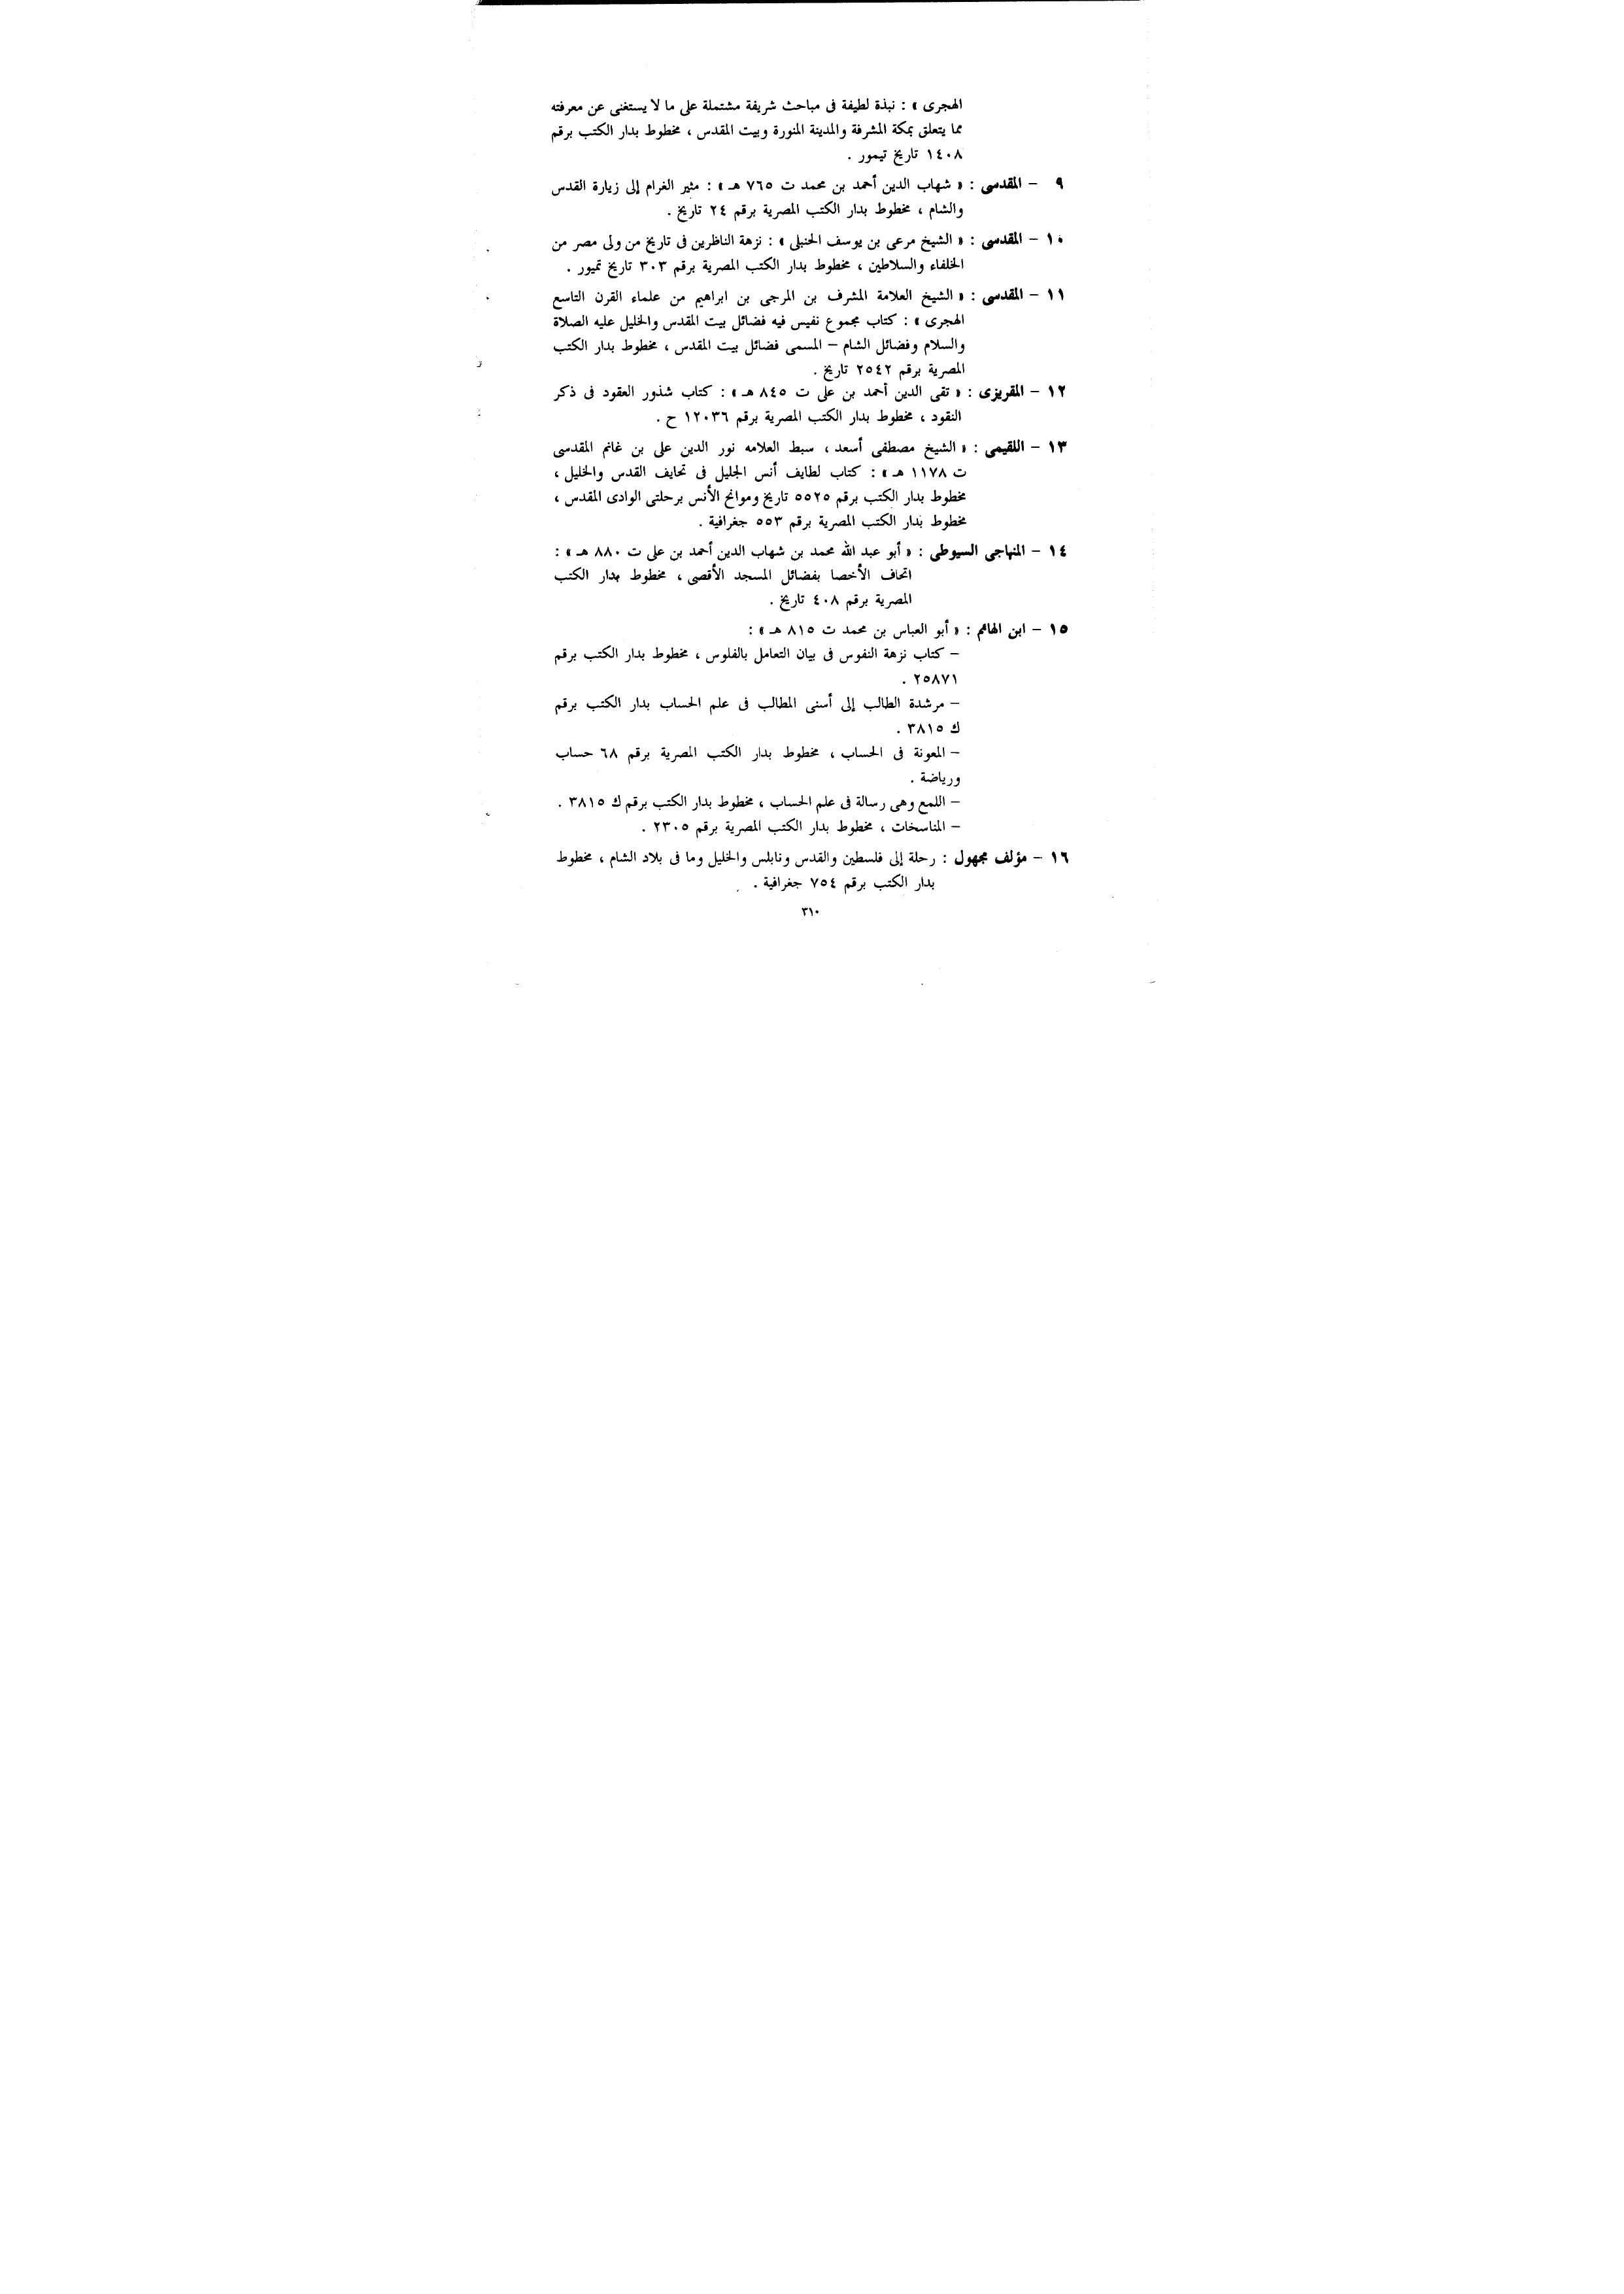 الهجرى » : نبذة لطيفة فى مباحث شريفة مشتملة على ما لا يستغنى عن معرفته
مما يتعلق بمكة المشرفة والمدينة المنورة وبيت المقدس ، مخطوط بدار الكتب برقم
١٤٠٨ تاريخ تيمور .
٩ – المقدسى : « شهاب الدين أحمد بن محمد ت ٧٦٥ هـ » : مثير الغرام إلى زيارة القدس
والشام ، مخطوط بدار الكتب المصرية برقم ٢٤ تاريخ .
١٠ – المقدسى : « الشيخ مرعى بن يوسف الحنبلى » : نزهة الناظرين فى تاريخ من ولى مصر من
الخلفاء والسلاطين ، مخطوط بدار الكتب المصرية برقم ٣٠٣ تاريخ تميور .
١١ – المقدسى : « الشيخ العلامة المشرف بن المرجى بن ابراهيم من علماء القرن التاسع
الهجرى » : كتاب مجموع نفيس فيه فضائل بيت المقدس والخليل عليه الصلاة
والسلام وفضائل الشام – المسمى فضائل بيت المقدس ، مخطوط بدار الكتب
المصرية برقم ٢٥٤٢ تاريخ .
١٢ – المقريزى : « تقى الدين أحمد بن على ت ٨٤٥ هـ » : كتاب شذور العقود فى ذكر
النقود ، مخطوط بدار الكتب المصرية برقم ١٢٠٣٦ ح .
١٣ – اللقيمى : « الشيخ مصطفى أسعد ، سبط العلامه نور الدين على بن غانم المقدسى
ت ١١٧٨ هـ » : كتاب لطايف أنس الجليل فى تحايف القدس والخليل ،
مخطوط بدار الكتب برقم ٥٥٢٥ تاريخ وموانح الأنس برحلتى الوادى المقدس ،
مخطوط بدار الكتب المصرية برقم ٥٥٣ جغرافية .
١٤ – المنهاجى السيوطى : « أبو عبد الله محمد بن شهاب الدين أحمد بن على ت ٨٨٠ هـ » :
اتحاف الأخصا بفضائل المسجد الأقصى ، مخطوط بدار الكتب
المصرية برقم ٤٠٨ تاريخ .
١٥ – ابن الهائم : « أبو العباس بن محمد ت ٨١٥ هـ » :
– كتاب نزهة النفوس فى بيان التعامل بالفلوس ، مخطوط بدار الكتب برقم
٢٥٨٧١ .
– مرشدة الطالب إلى أسنى المطالب فى علم الحساب بدار الكتب برقم
ك ٣٨١٥ .
– المعونة فى الحساب ، مخطوط بدار الكتب المصرية برقم ٦٨ حساب
ورياضة .
– اللمع وهى رسالة فى علم الحساب ، مخطوط بدار الكتب برقم ك ٣٨١٥ .
– المناسخات ، مخطوط بدار الكتب المصرية برقم ٢٣٠٥ .
١٦ – مؤلف مجهول : رحلة إلى فلسطين والقدس ونابلس والخليل وما فى بلاد الشام ، مخطوط
بدار الكتب برقم ٧٥٤ جغرافية .
٣١٠